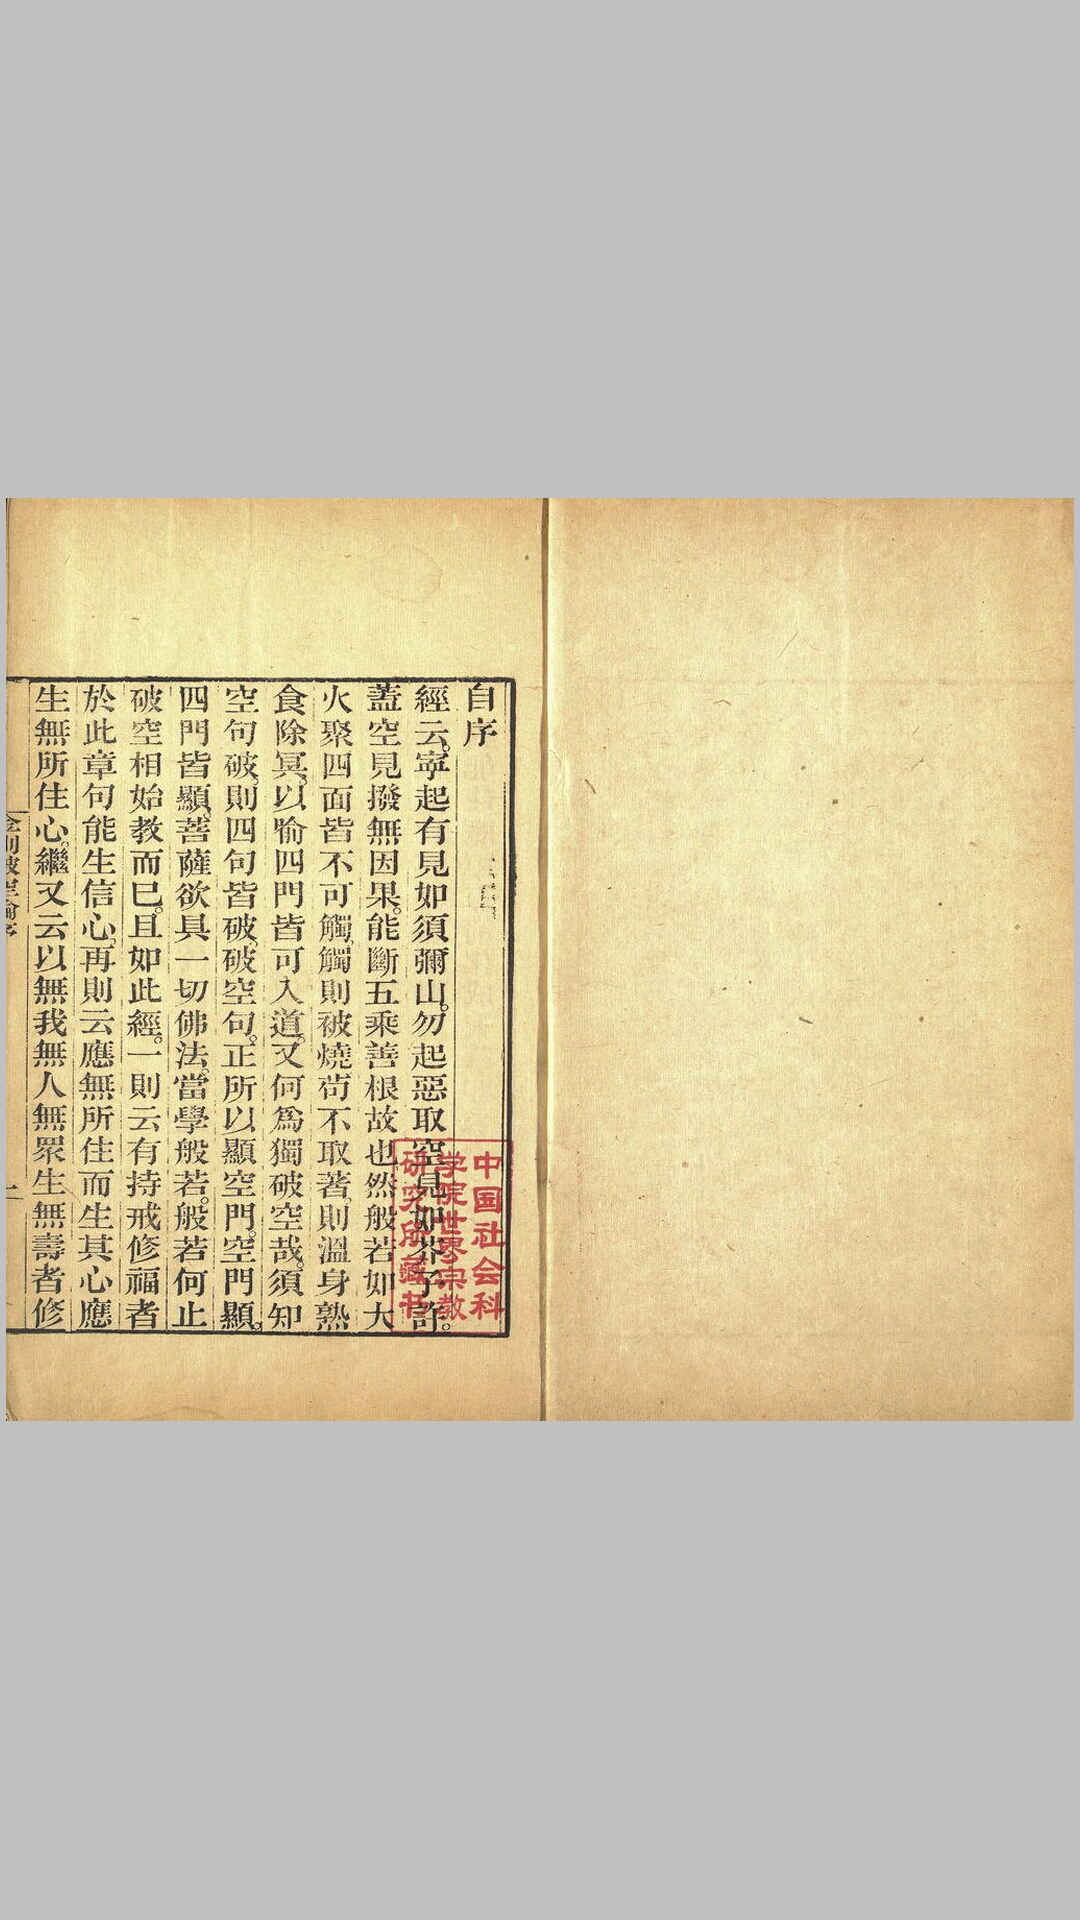 自序
經云。寧起有見如須彌山。勿起惡取空見如芥子許。
蓋空見撥無因果。能斷五乘善根故也。然般若如大
火聚四面皆不可觸。觸則被燒。苟不取著。則溫身熟
食除冥。以喻四門皆可入道。又何爲獨破空哉。須知
空句破。則四句皆破。破空句。正所以顯空門。空門顯。
四門皆顯。菩薩欲具一切佛法。當學般若。般若何止
破空相始教而已。且如此經。一則云有持戒修福者
於此章句能生信心。再則云應無所住而生其心應
生無所住心。繼又云以無我無人無眾生無壽者修
金剛破空論序
一
中国社会科
学院世界宗教
研究所藏书